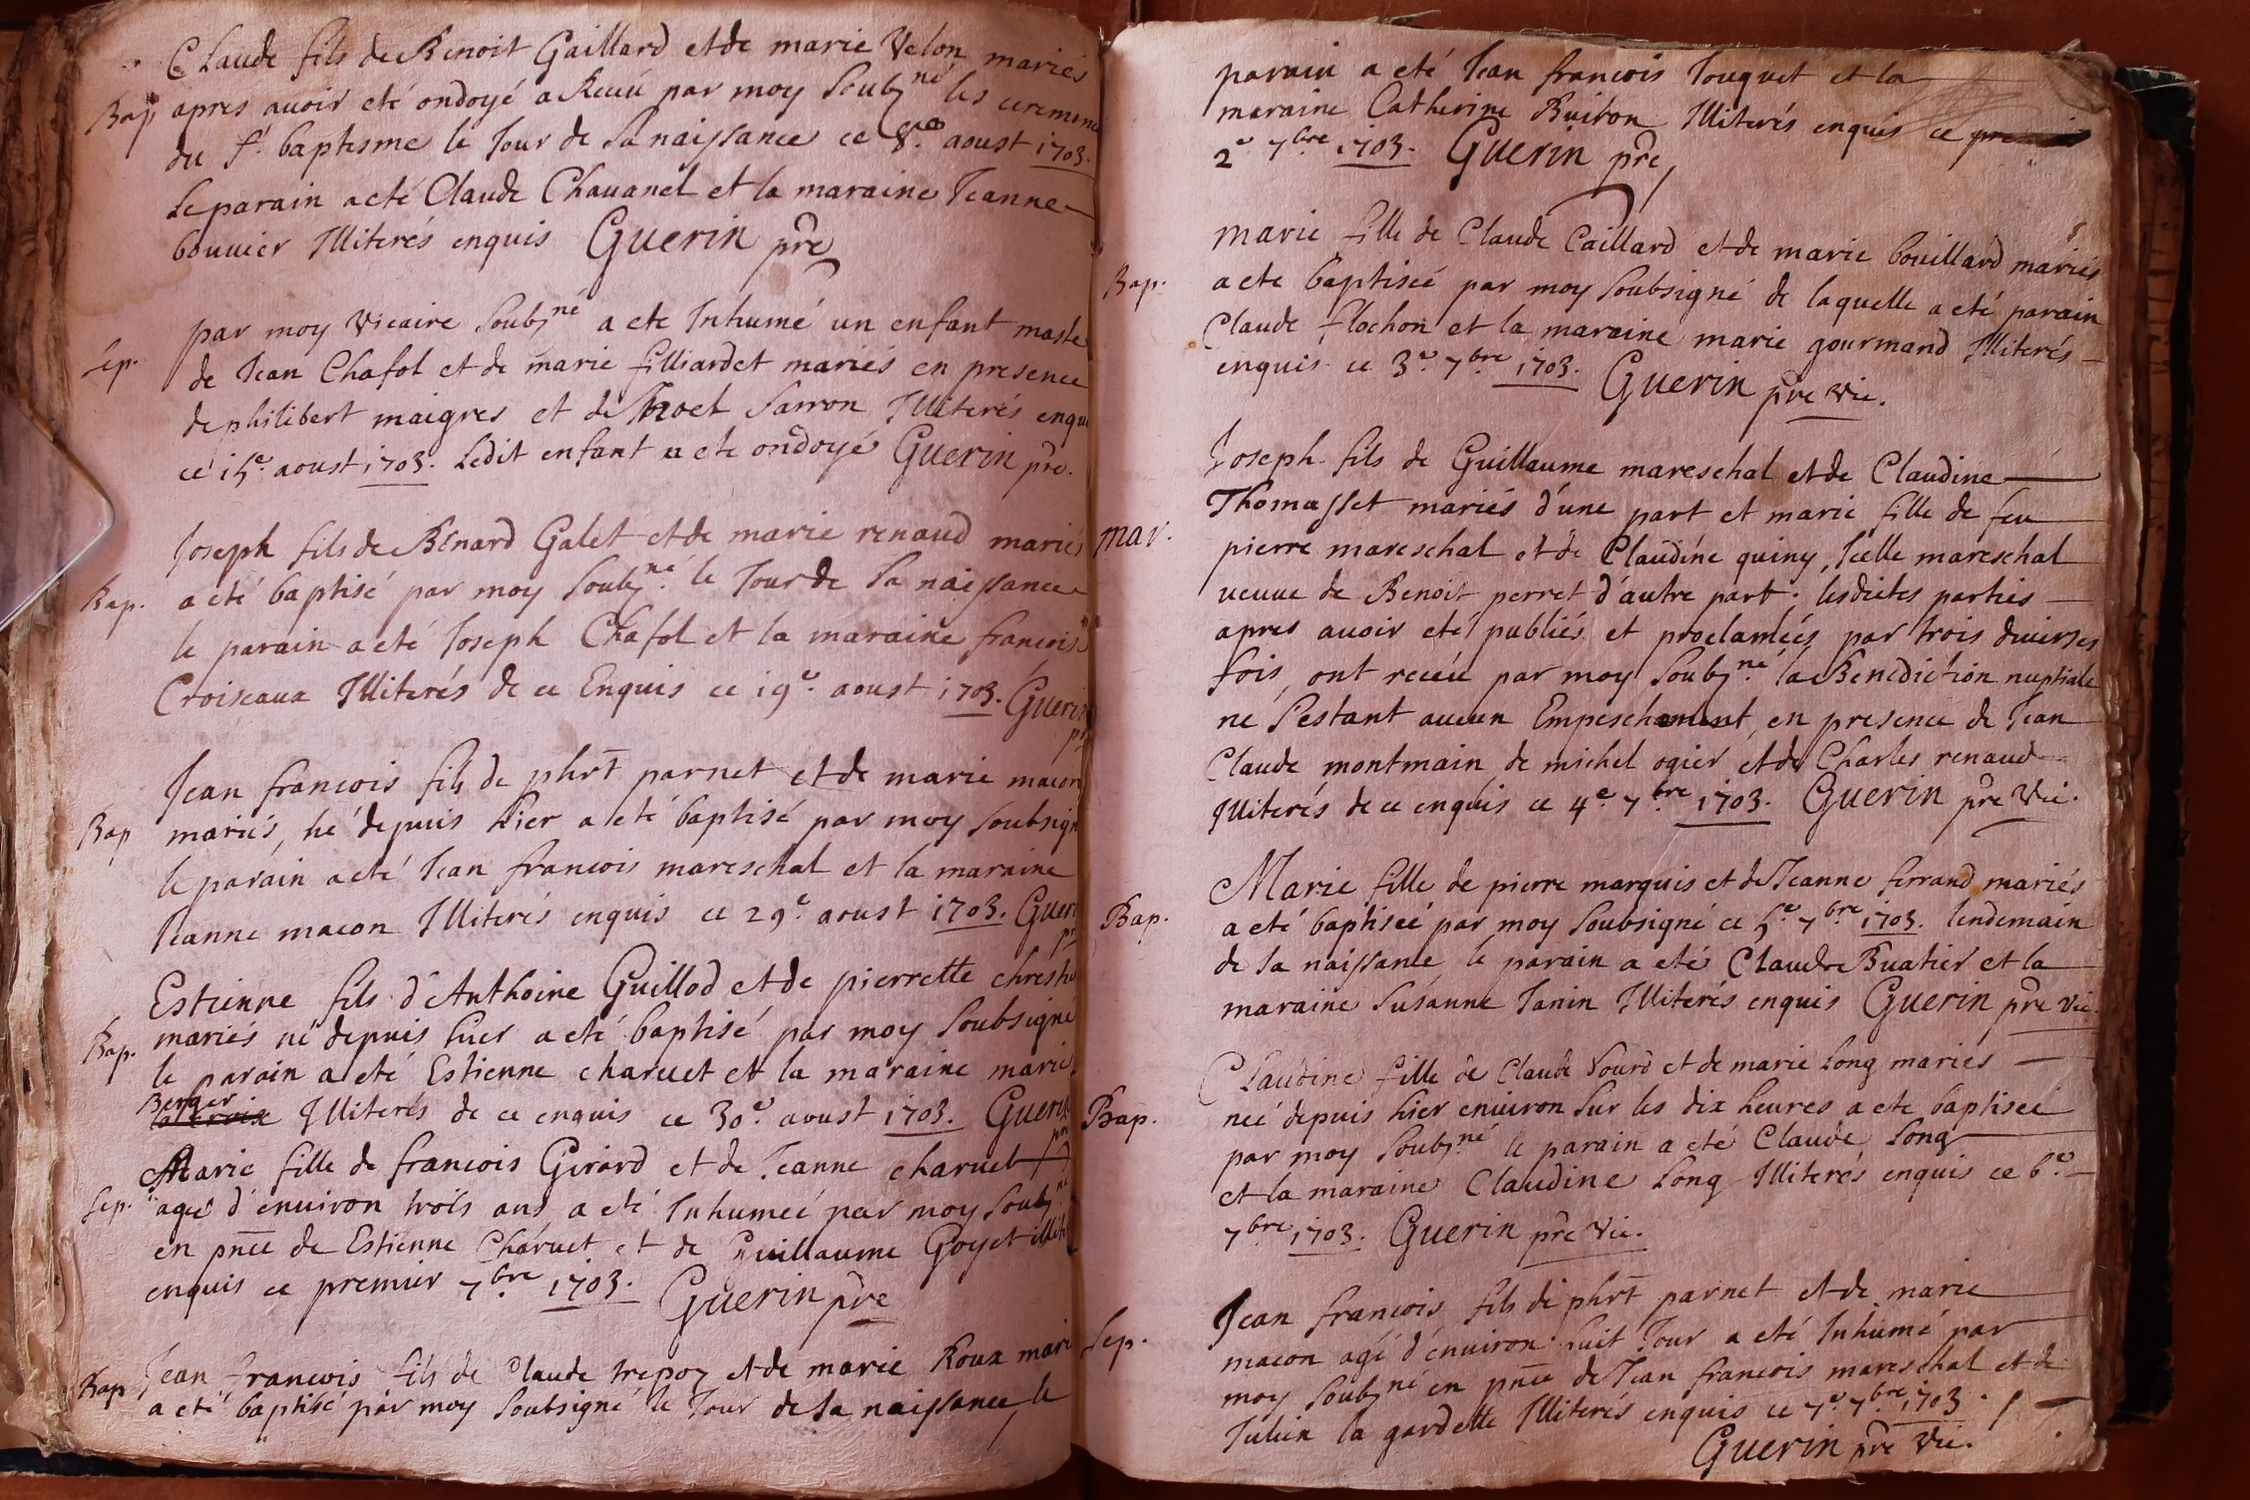 Claude fils de Benoit Gaillard et de marie Velon mariés
Bap apres avoir eté ondoyé a Receu par moy soubz.né les ceremonie
du s.t baptesme le Jour de sa naissance ce 8.e aoust 1703.
Le parain a eté Claude Chavanel et la maraine Jeanne
bouvier Illiterés enquis Guerin pre
par moy vicaire soubz.né a ete Inhumé un enfant masle
Sep. de Jean Chafol et de marie filliardet mariés en presence
de philibert maigres et de Noel Sarron Illiterés enqu
ce 15.e aoust 1703. Ledit enfant a ete ondoyé Guerin pre.
Joseph fils de Benard Galet et de marie renaud mariés
Bap. a eté baptisé par moy soubz.né le Jour de sa naissance
le parain a eté Joseph Chafol et la maraine francoise
Croiseaux Illiterés de ce Enquis ce 19.e aoust 1703. Guerin
pr
Jean francois fils de phrt parnet et de marie macon
Bap mariés, né depuis hier a eté baptisé par moy soubsign
le parain a eté Jean francois mareschal et la maraine
Jeanne macon Illiterés enquis ce 29.e aoust 1703. Gueri
pr
Estienne fils d'Anthoine Guillod et de pierrette christ
Bap. mariés né depuis hier a eté baptisé par moy soubsigné
le parain a eté Estienne charvet et la maraine marie
Berger
Illiterés de ce enquis ce 30.e aoust 1703. Guerin
pre
Marie fille de francois Girard et de Jeanne charvet
Sep. agée d'environ trois ans a eté Inhumeé par moy soubz.né
en pnce de Estienne Charvet et de Guillaume Goyet illite
enquis ce premier 7.bre 1703. Guerin pre
Jean francois fils de Claude trepoz et de marie Roux mari
Bap a eté baptisé par moy soubsigné le Jour de sa naissance, le
parain a eté Jean francois Touquet et la
maraine Catherine Buiron Illiterés enquis ce
2.e 7.bre 1703. Guerin pre
marie fille de Claude Caillard et de marie bouillard mariés
Bap. a ete baptiseé par moy soubsigné de laquelle a eté parain
Claude flochon et la maraine marie gourmand Illiterés
enquis ce 3.e 7.bre 1703. Guerin pre vic.
Joseph fils de Guillaume mareschal et de Claudine
Thomasset mariés d'une part et marie fille de feu
mar. pierre mareschal et de Claudine quiny, Icelle mareschal
veuve de Benoit perret d'autre part. lesdittes parties
apres avoir ete publiés et proclameés par trois diverses
fois, ont receu par moy soubz.né la Benediction nuptiale
ne s'estant aucun Empeschement, en presence de Jean
Claude montmain, de michel ogier et de Charles renaud
Illiterés de ce enquis ce 4.e 7.bre 1703. Guerin pre vic.
Marie fille de pierre marquis et de Jeanne ferrand mariés
Bap. a eté baptiseé par moy soubsigné ce 5.e 7.bre 1703. lendemain
de sa naissance le parain a eté Claude Buatier et la
maraine Susanne Janin Illiterés enquis Guerin pre vic
Claudine fille de Claude Sourd et de marie Long mariés
Bap. neé depuis hier environ sur les dix heures a ete baptiseé
par moy soubz.né le parain a eté Claude Long
et la maraine Claudine Long Illiterés enquis ce 6.e
7.bre 1703. Guerin pre vic.
Jean francois fils de phrt parnet et de marie
Sep. macon agé d'environ huit Jour a eté Inhumé par
moy soubz.né en pnce de Jean francois mareschal et de
Julien la gardette Illiterés enquis ce 7.e 7.bre 1703.
Guerin pre vic.